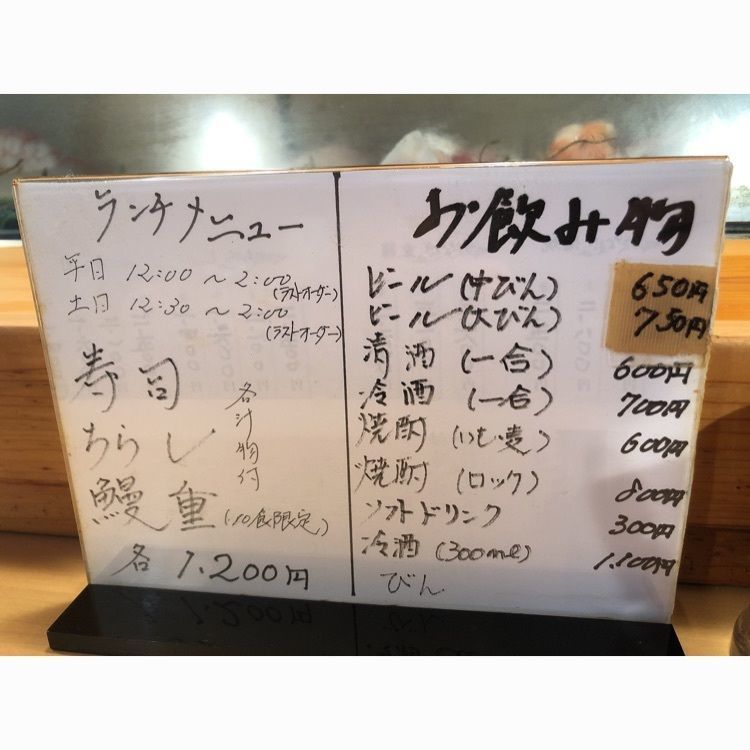 ランチメニュー
平日 12:00 〜 2:00
(ラストオーダー)
土日 12:30 〜 2:00
(ラストオーダー)
寿司
ちらし
鰻重 (10食限定)
各汁物付
各 1.200円
お飲み物
ビール (中びん) 650円
ビール (大びん) 750円
清酒 (一合) 600円
冷酒 (一合) 700円
焼酎 (いも麦) 600円
焼酎 (ロック) 800円
ソフトドリンク 300円
冷酒 (300ml) 1.100円
びん